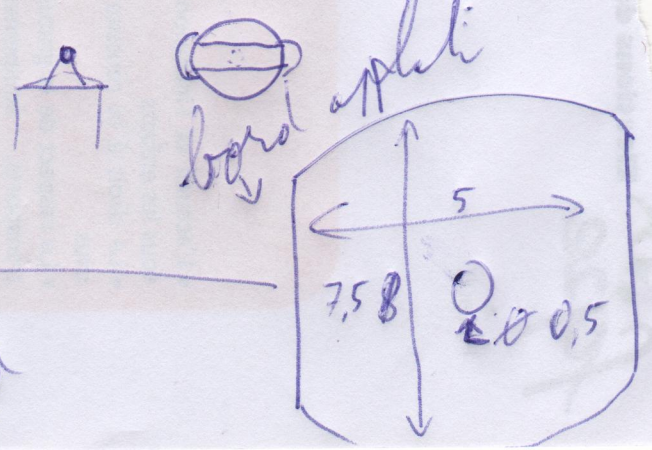 bord applati
5
7,5
ø 0,5